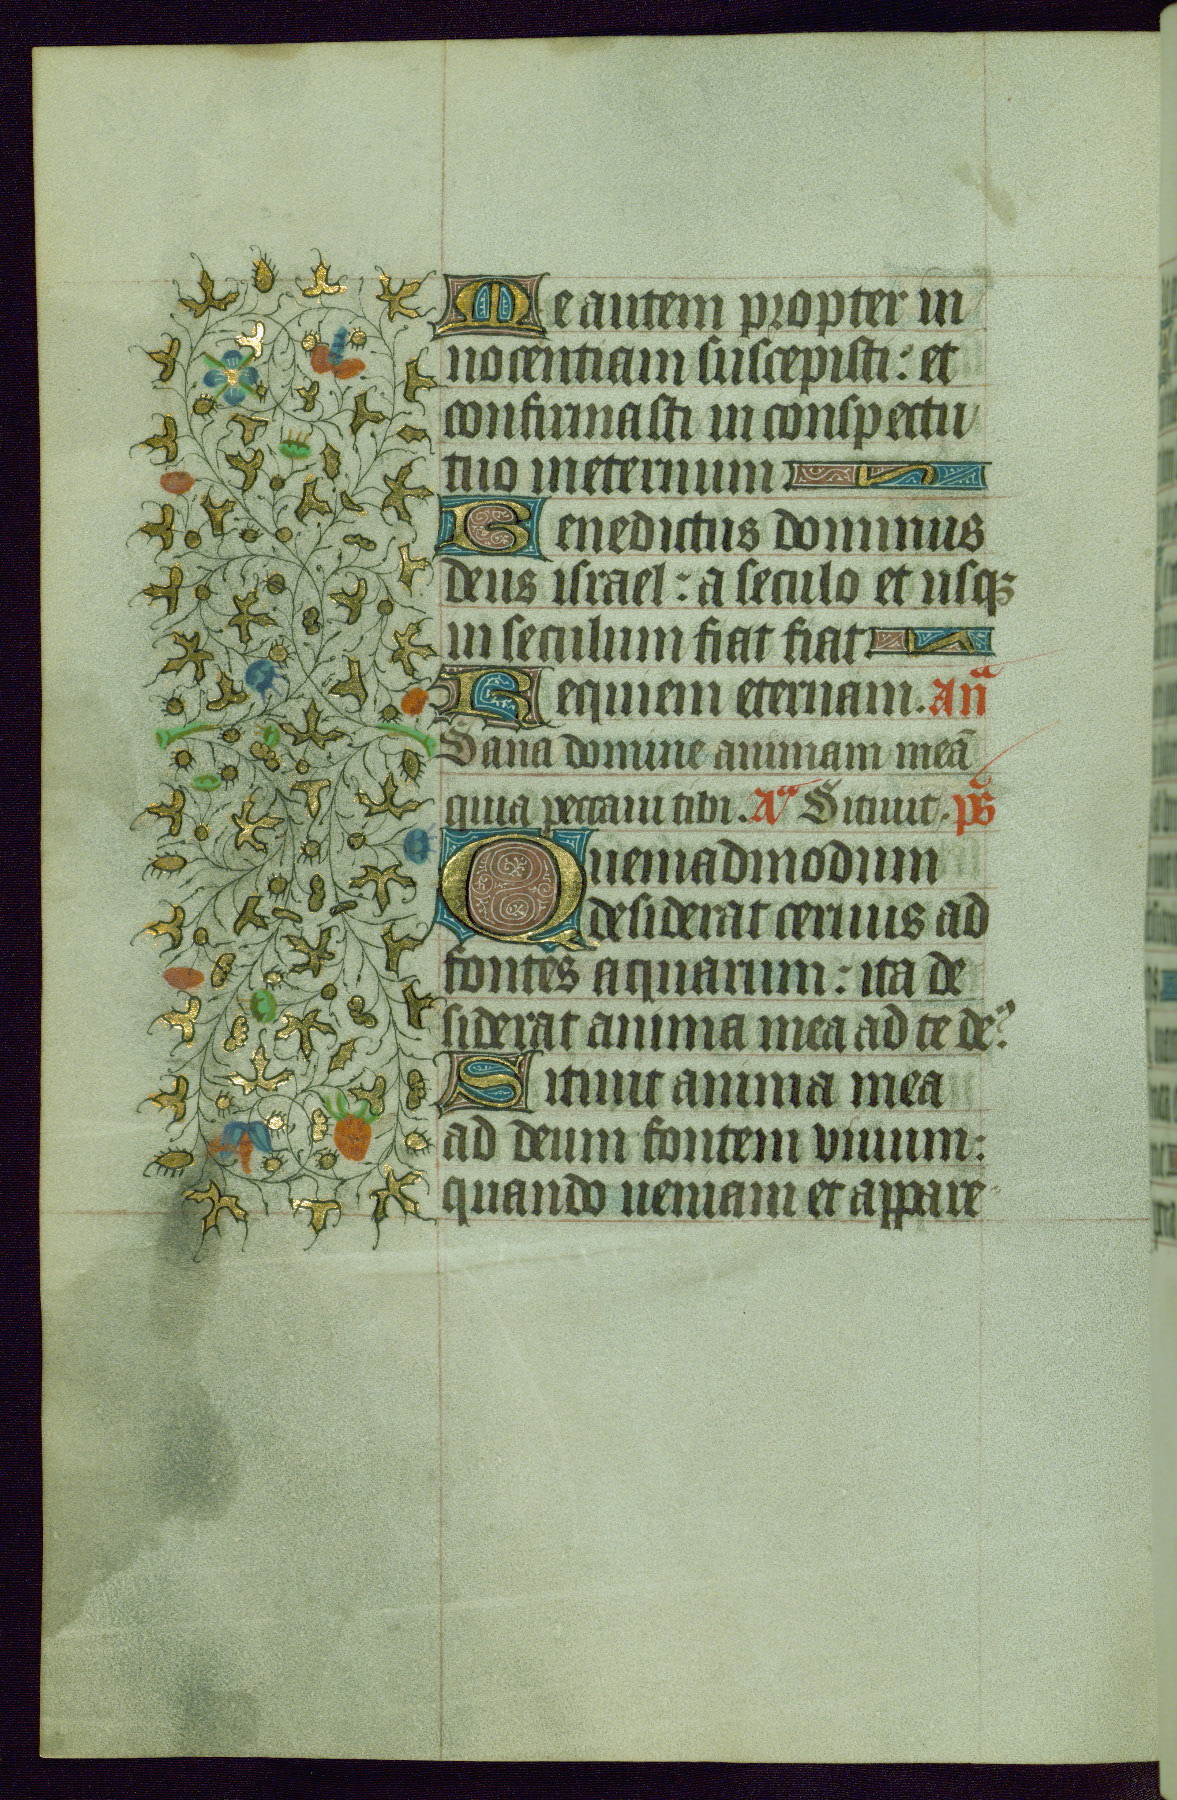 Me autem propter in
nocentiam suscepisti : et
confirmasti in conspectu
tuo in eternum .
Benedictus dominus
deus israel : a seculo et usqꝫ
in seculum fiat fiat
Requiem eternam . An̄
Sana domine animam meā
quia peccaui tibi . Aᵃ Sitiuit . ps
Quemadmodum
desiderat ceruus ad
fontes aquarum : ita de
siderat anima mea ad te deꝰ
Sitiuit anima mea
ad deum fontem viuum :
quando ueniam et appare-